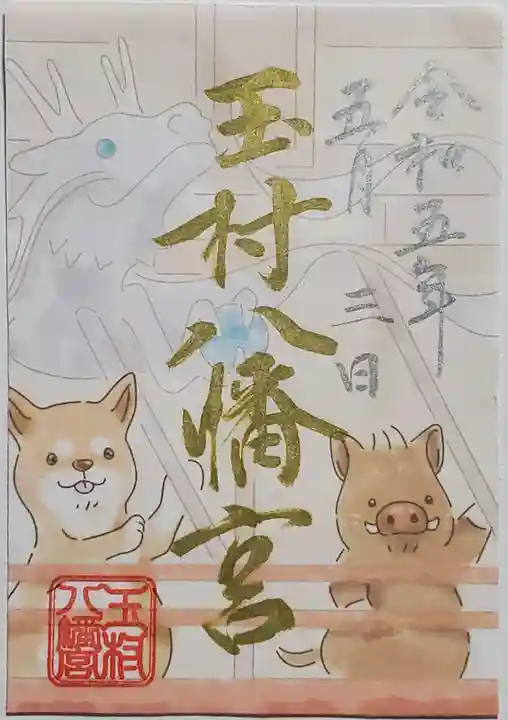 令和五年
五月三日
玉村八幡宮
玉村
八幡宮